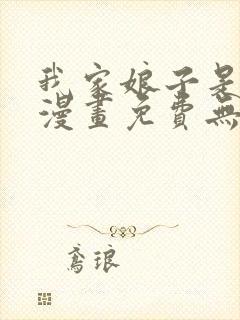 我家娘子是
漫畫免費無
鳶琅